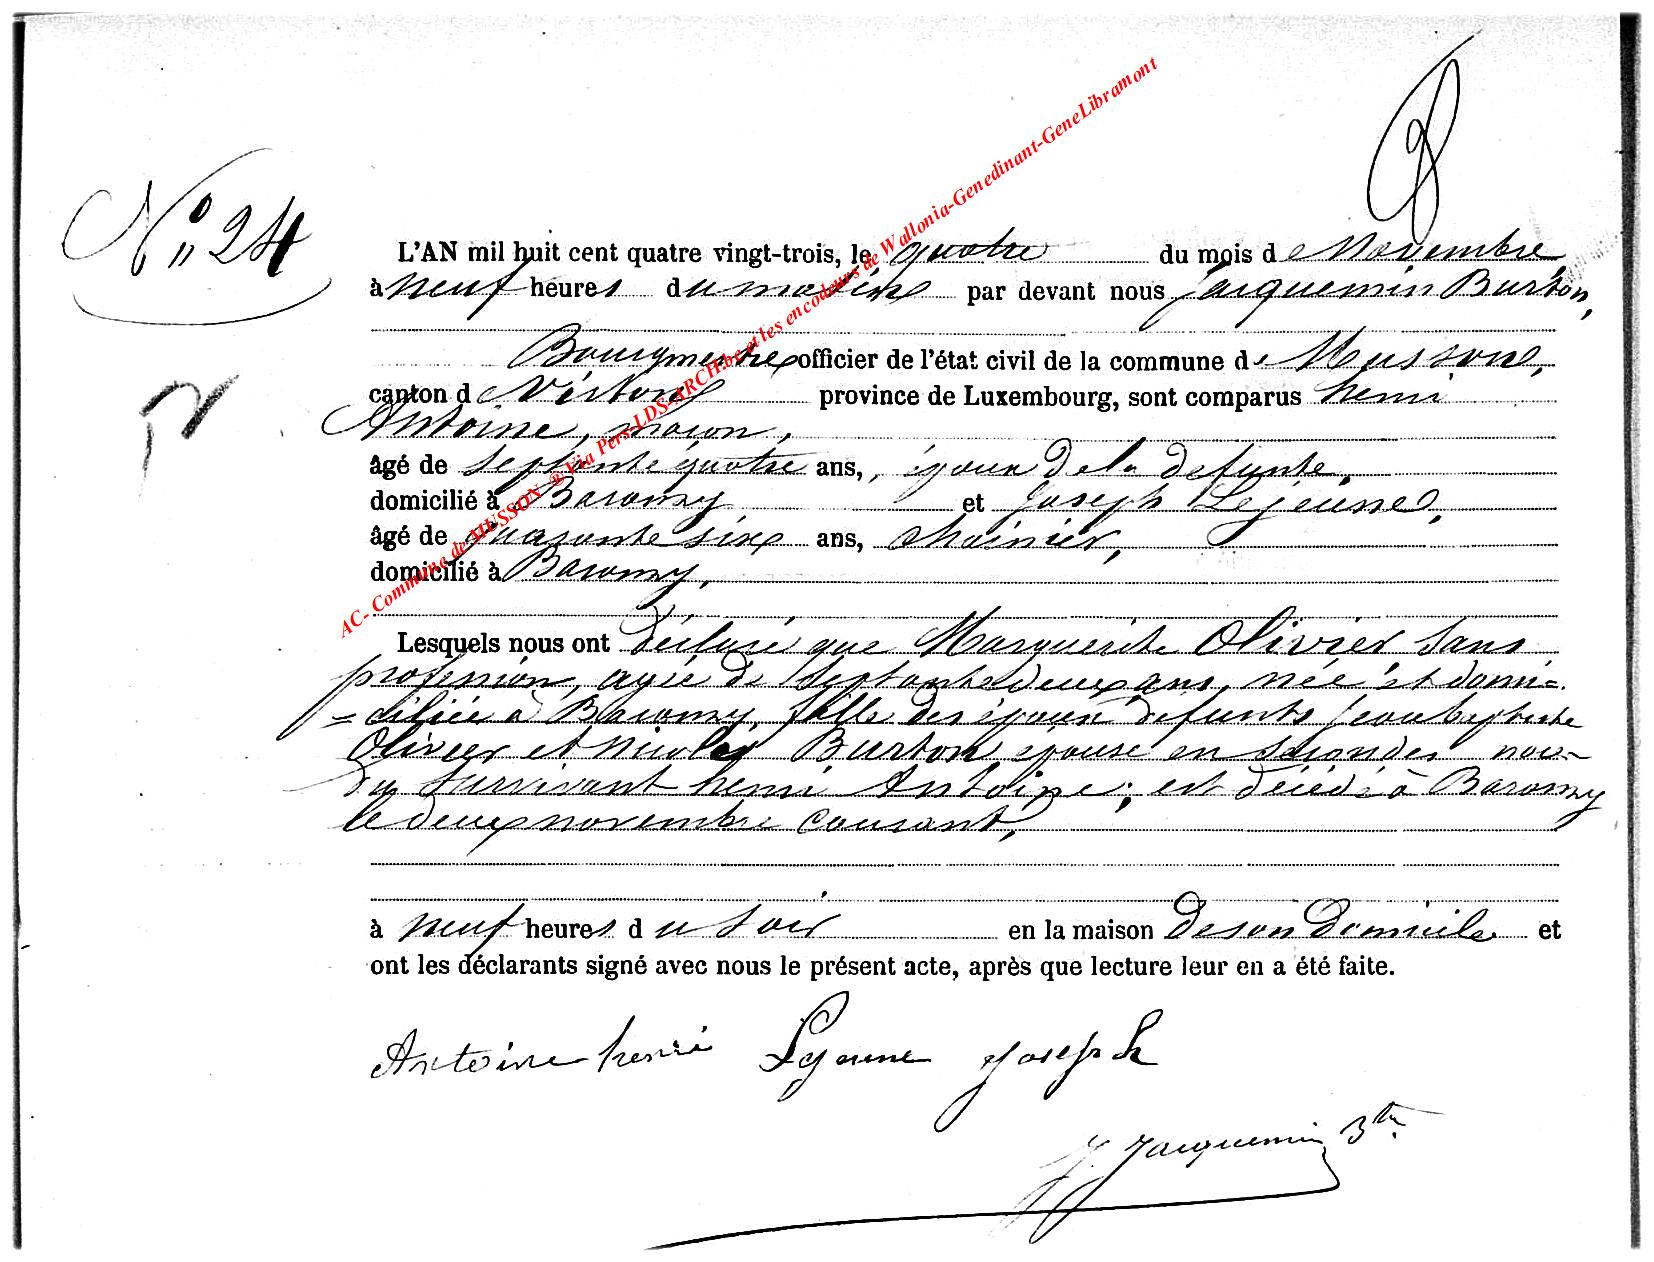 AC- Commune de MUSSON ® Via Pers-LDS-ARCH.be et les encodeurs de Wallonia-Genedinant-GeneLibramont
N° 24
L'AN mil huit cent quatre vingt-trois, le quatre du mois de Novembre
à neuf heures du matin par devant nous Jacquemin Burton,
Bourgmestre officier de l'état civil de la commune de Musson,
canton de Virton province de Luxembourg, sont comparus henri
Antoine, maçon,
âgé de septante quatre ans, époux de la défunte,
domicilié à Baranzy et Joseph Lejeune,
âgé de quarante six ans,
domicilié à Baranzy,
Lesquels nous ont déclaré que Marguerite Olivier sans
profession, agée de septante deux ans, née et domi=
=ciliée à Baranzy, fille des époux défunts Jean Baptiste
Olivier et Nicole Burton, épouse en secondes noces
du survivant henri Antoine; est décédée à Baranzy
le deux novembre courant,
à neuf heures du soir en la maison de son domicile et
ont les déclarants signé avec nous le présent acte, après que lecture leur en a été faite.
Antoine henri Lejeune joseph
J. Jacquemin Btn.